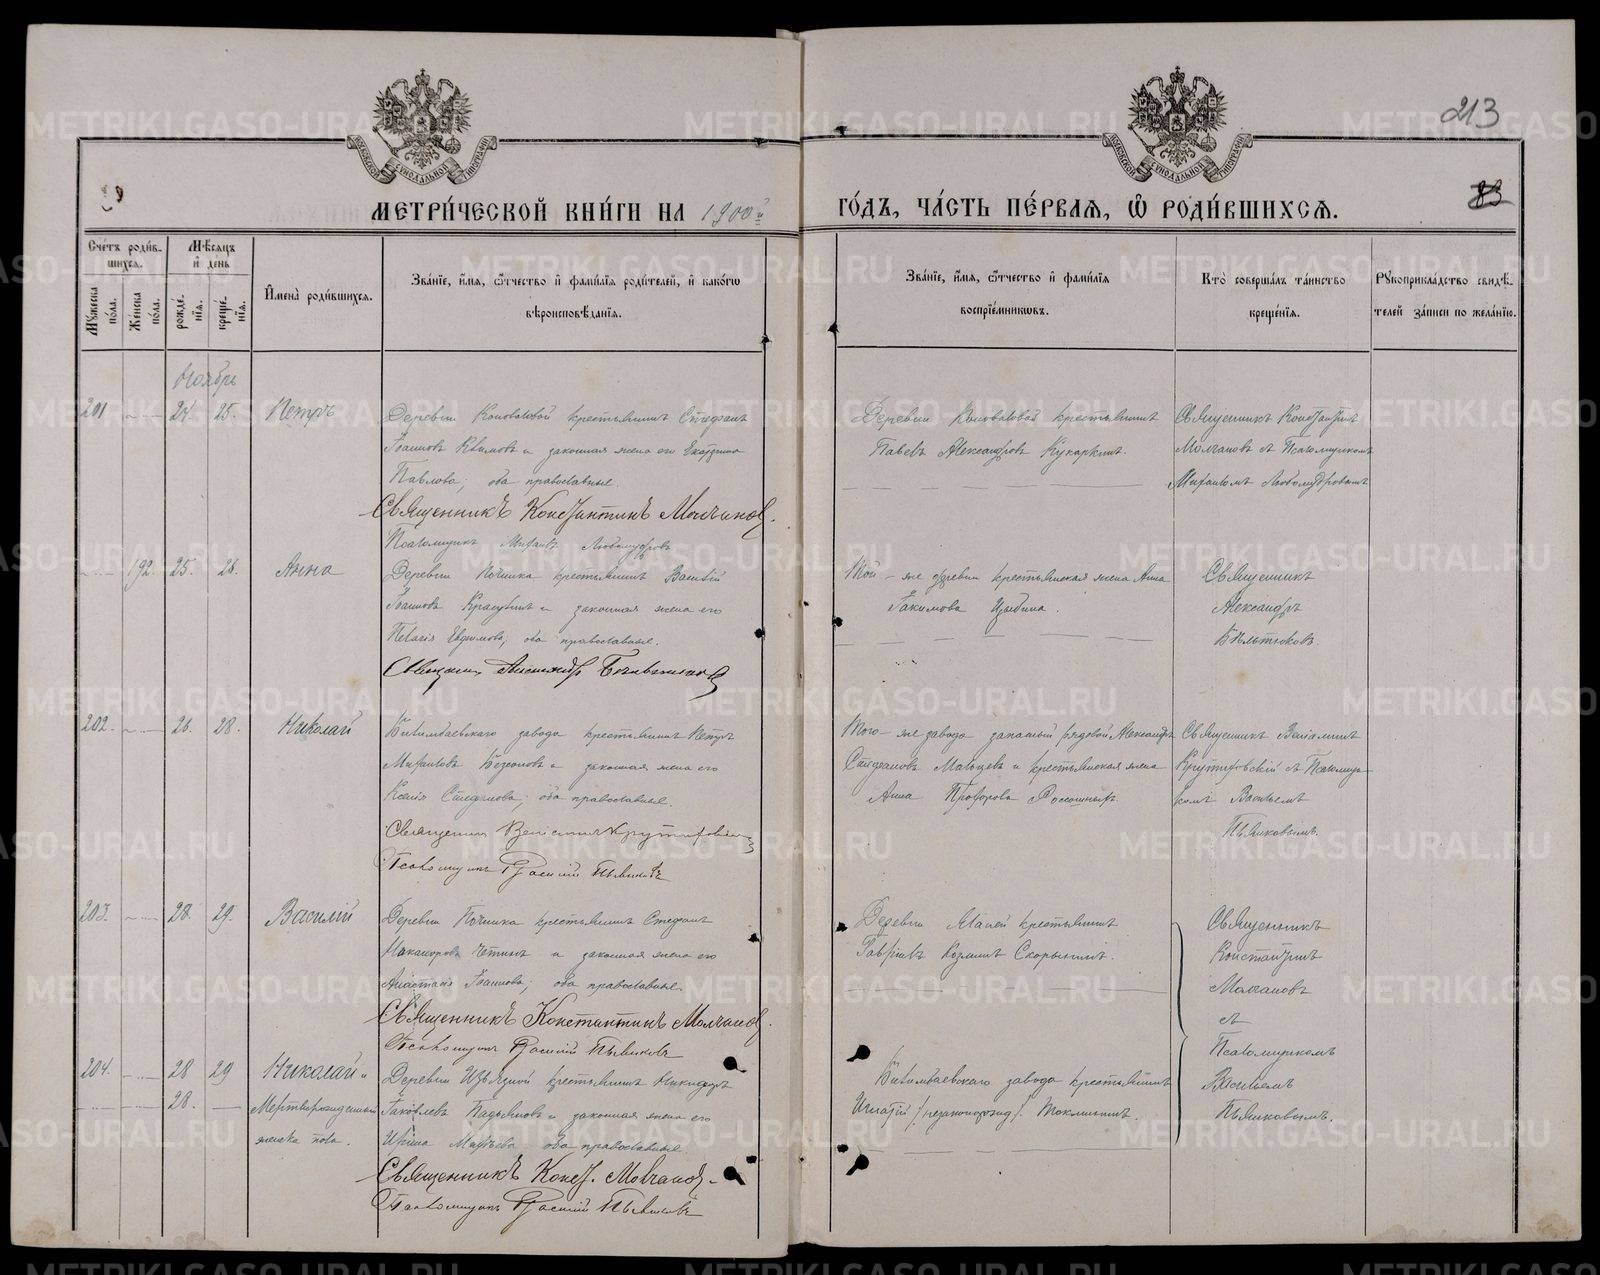 213
83
МЕТРИ́ЧЕСКОЙ КНИ́ГИ НА 1900й
ГО́ДЪ, ЧА́СТЬ ПЕ́РВАЯ, Ѽ РОДИ́ВШИХСЯ.
Сче́тъ роди́в-
шихся.
Мꙋ́жеска по́ла.
Же́нска по́ла.
Мѣ́сяцъ и҆ де́нь
рожде́нїя.
креще́нїя.
И҆мена̀ роди́вшихся.
Зва́нїе, и҆́мя, ѻ҆́тчество и҆ фами́лїя роди́телей, и҆ како́гѡ
вѣроисповѣ́данїя.
Зва́нїе, и҆́мя, ѻ҆́тчество и҆ фами́лїя
воспрїе́мникѡвъ.
Кто̀ соверша́лъ та́инство
креще́нїя.
Рꙋкоприкла́дство свидѣ́-
телей за́писи по жела́нїю.
Ноябрь
201 24. 25. Петръ
Деревни Коноваловой крестьянинъ Стефанъ
Іоанновъ Климовъ и законная жена его Екатерина
Павлова; оба православные.
Священникъ Константинъ Молчановъ.
Псаломщикъ Михаилъ Любомудровъ
Деревни Коноваловой крестьянинъ
Павелъ Александровъ Кукаркинъ.
Священникъ Константинъ
Молчановъ съ Псаломщикомъ
Михаиломъ Любомудровымъ
192. 25. 26. Анна
Деревни Починка крестьянинъ Василій
Іоанновъ и законная жена его
Пелагія Евфимова; оба православные.
Священникъ Александръ
Той-же деревни крестьянская жена Анна
Іакимова Цыбина.
Священникъ
Александръ
Бѣльтюковъ
202. 26. 28. Николай
Билимбаевскаго завода крестьянинъ Петръ
Михаиловъ и законная жена его
Ксенія Стефанова; оба православные.
Священникъ Веніаминъ
Псаломщикъ Василій Пьянковъ
Того-же завода запасный рядовой Александръ
Стефановъ Мальцевъ и крестьянская жена
Анна Прохорова
Священникъ Веніаминъ
съ Псаломщи-
комъ Васильемъ
Пьянковымъ.
203. 28. 29. Василій
Деревни Починка крестьянинъ Стефанъ
и законная жена его
Анастасія Іоаннова; оба православные.
Священникъ Константинъ Молчановъ.
Псаломщикъ Василій Пьянковъ
Деревни Талой крестьянинъ
Гавріилъ Козминъ Скорынинъ.
Священникъ
Константинъ
Молчановъ
съ
Псаломщикомъ
Васильемъ
Пьянковымъ.
204. 28 29 Николай и
28. Мертворожденный
женска пола.
Деревни крестьянинъ Никифоръ
Іаковлевъ и законная жена его
Ирина Матѳѣева оба православные.
Священникъ Конст. Молчановъ.
Псаломщикъ Василій Пьянковъ
Билимбаевскаго завода крестьянинъ
Игнатій /незаконорожд/. Токминъ.